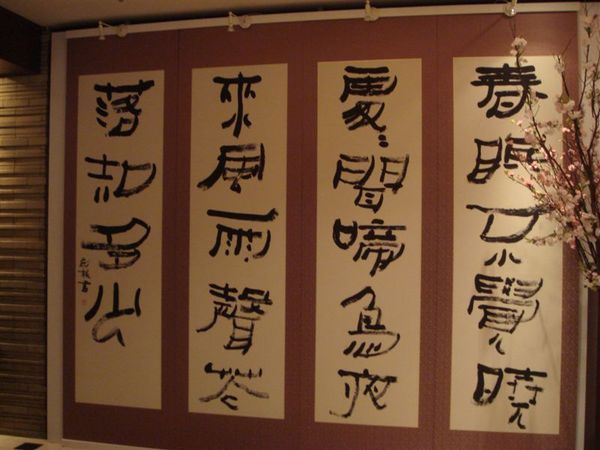 春眠不覺曉
處〻聞啼鳥夜
來風雨聲花
落知多少
書